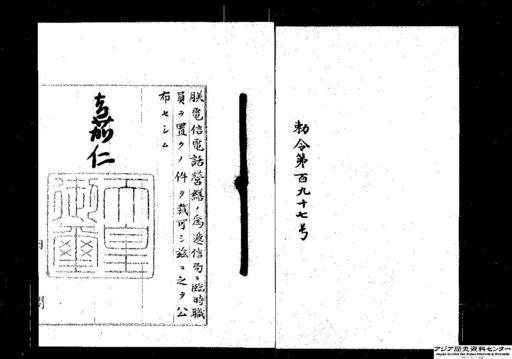 勅令第百九十七号
朕電信電話営繕ノ為逓信局ニ臨時職
員ヲ置クノ件ヲ裁可シ茲ニ之ヲ公
布セシム
嘉仁
天皇
御璽
内閣
アジア歴史資料センター
Japan Center for Asian Historical Records